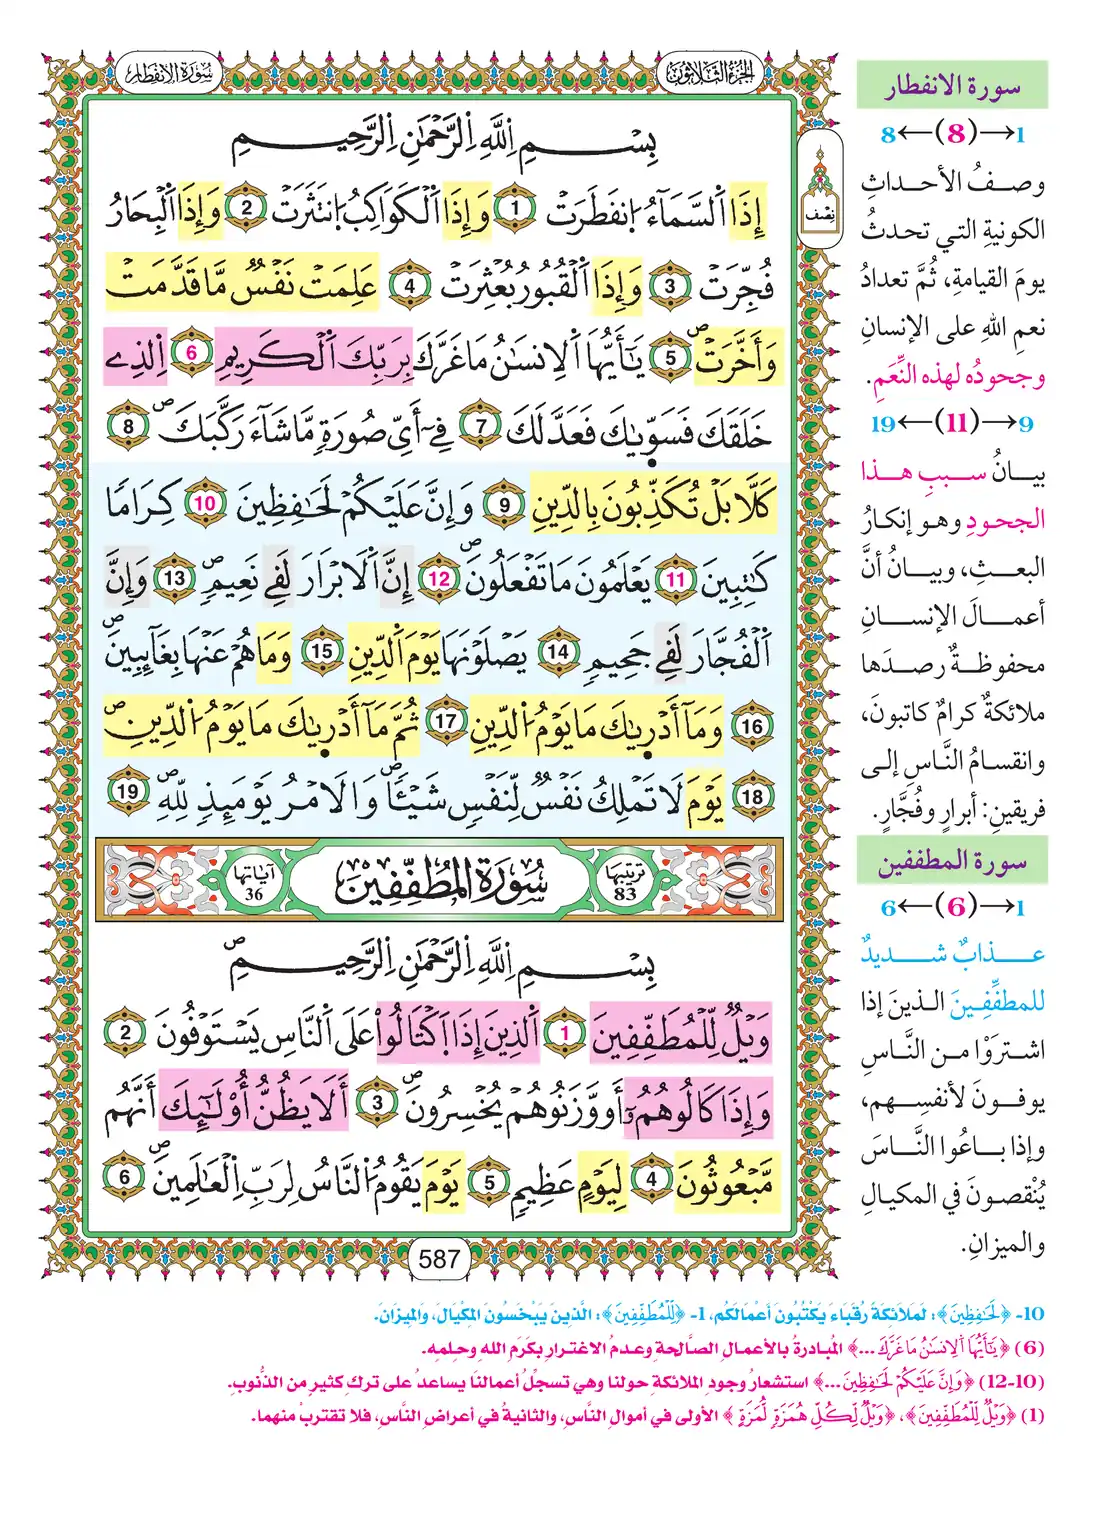 الجزء الثلاثون
سورة الانفطار
بِسْمِ اِللَّهِ اِلرَّحْمَٰنِ اِلرَّحِيمِ
إِذَا اَ۬لسَّمَآءُ اُ۪نفَطَرَتْ 1 وَإِذَا اَ۬لْكَوَاكِبُ اُ۪نتَثَرَتْ 2 وَإِذَا اَ۬لْبِحَارُ
فُجِّرَتْ 3 وَإِذَا اَ۬لْقُبُورُ بُعْثِرَتْ 4 عَلِمَتْ نَفْسٌ مَّا قَدَّمَتْ
وَأَخَّرَتْ 5 يَٰٓأَيُّهَا اَ۬لِانسَٰنُ مَا غَرَّكَ بِرَبِّكَ اَ۬لْكَرِيمِ 6 اِ۬لذِے
خَلَقَكَ فَسَوّ۪يٰكَ فَعَدَّلَكَ 7 فِےٓ أَيِّ صُورَةٍ مَّا شَآءَ رَكَّبَكَ 8
كَلَّا بَلْ تُكَذِّبُونَ بِالدِّينِ 9 وَإِنَّ عَلَيْكُمْ لَحَٰفِظِينَ 10 كِرَامًا
كَٰتِبِينَ 11 يَعْلَمُونَ مَا تَفْعَلُونَ 12 إِنَّ اَ۬لَابْرَارَ لَفِے نَعِيمٍ 13 وَإِنَّ
اَ۬لْفُجَّارَ لَفِے جَحِيمٍ 14 يَصْلَوْنَهَا يَوْمَ اَ۬لدِّينِ 15 وَمَا هُمْ عَنْهَا بِغَآئِبِينَ
16 وَمَآ أَدْر۪يٰكَ مَا يَوْمُ اُ۬لدِّينِ 17 ثُمَّ مَآ أَدْر۪يٰكَ مَا يَوْمُ اُ۬لدِّينِ
18 يَوْمَ لَا تَمْلِكُ نَفْسٌ لِّنَفْسٍ شَيْـٔٗا وَالَامْرُ يَوْمَئِذٍ لِّلهِ 19
ترتيبها 83 سُورَةُ المُطَفِّفِين آياتها 36
بِسْمِ اِللَّهِ اِلرَّحْمَٰنِ اِلرَّحِيمِ
وَيْلٌ لِّلْمُطَفِّفِينَ 1 اَ۬لذِينَ إِذَا اَ۪كْتَالُواْ عَلَى اَ۬لنَّاسِ يَسْتَوْفُونَ 2
وَإِذَا كَالُوهُمُۥٓ أَو وَّزَنُوهُمْ يُخْسِرُونَ 3 أَلَا يَظُنُّ أُوْلَٰٓئِكَ أَنَّهُم
مَّبْعُوثُونَ 4 لِيَوْمٍ عَظِيمٍ 5 يَوْمَ يَقُومُ اُ۬لنَّاسُ لِرَبِّ اِ۬لْعَٰلَمِينَ 6
587
نصف
سورة الانفطار
1→(8)←8
وصفُ الأحداثِ
الكونيةِ التي تحدثُ
يومَ القيامةِ، ثُمَّ تعدادُ
نعمِ اللهِ على الإنسانِ
وجحودُه لهذه النِّعَمِ.
9→(11)←19
بيانُ سببِ هذا
الجحودِ وهو إنكارُ
البعثِ، وبيانُ أنَّ
أعمالَ الإنسانِ
محفوظةٌ رصدَها
ملائكةٌ كرامٌ كاتبونَ،
وانقسامُ النَّاسِ إلى
فريقينِ: أبرارٍ وفُجَّارٍ.
سورة المطففين
1→(6)←6
عذابٌ شديدٌ
للمطفِّفِينَ الذينَ إذا
اشتَرَوْا من النَّاسِ
يوفونَ لأنفسِهم،
وإذا باعُوا النَّاسَ
يُنْقصونَ في المكيالِ
والميزانِ.
10- ﴿لَحَٰفِظِينَ﴾: لَمَلَائِكَةً رُقَبَاءَ يَكْتُبُونَ أَعْمَالَكُم، 1- ﴿لِّلْمُطَفِّفِينَ﴾: الَّذِينَ يَبْخَسُونَ المِكْيَالَ، وَالمِيزَانَ.
(6) ﴿يَٰٓأَيُّهَا اَ۬لِانسَٰنُ مَا غَرَّكَ ...﴾ المُبادرةُ بالأعمالِ الصَّالحةِ وعدمُ الاغترارِ بكَرَمِ اللهِ وحلمِه.
(10-12) ﴿وَإِنَّ عَلَيْكُمْ لَحَٰفِظِينَ ...﴾ استشعارُ وجودِ الملائكةِ حولنا وهي تسجلُ أعمالَنا يساعدُ على تركِ كثيرٍ من الذُّنوبِ.
(1) ﴿وَيْلٌ لِّلْمُطَفِّفِينَ﴾، ﴿وَيْلٌ لِّكُلِّ هُمَزَةٍ لُّمَزَةٍ﴾ الأولى في أموالِ النَّاسِ، والثانيةُ في أعراضِ النَّاسِ، فلا تقتربْ منهما.